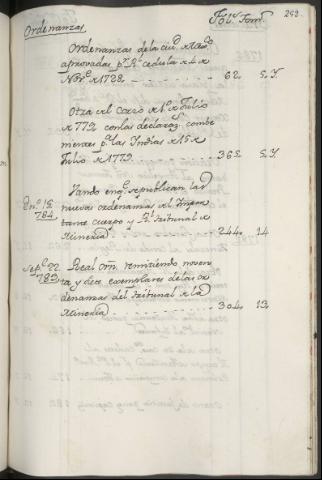 Ordenanzas Fol.s Tom.s 252
Ordenanzas de la ciu.d
aprovadas p.r R.l cedula de 4 de
Nov.e de 1728 62. 5.
Otra del Corso de 1.º de Julio
de 1772 con las declarac.s combe
nientes p.a las Indias de 15 de
Julio de 1779 365. 5.
En.o 15 784. Vando en q.e se publican las
nuevas ordenanzas del Impor
tante cuerpo y R.l tribunal de
Mineria 244. 14
Sep.e 22 783. Real orn. remitiendo noven
ta y dos exemplares de las or
denanzas del tribunal de la
Mineria 304. 13